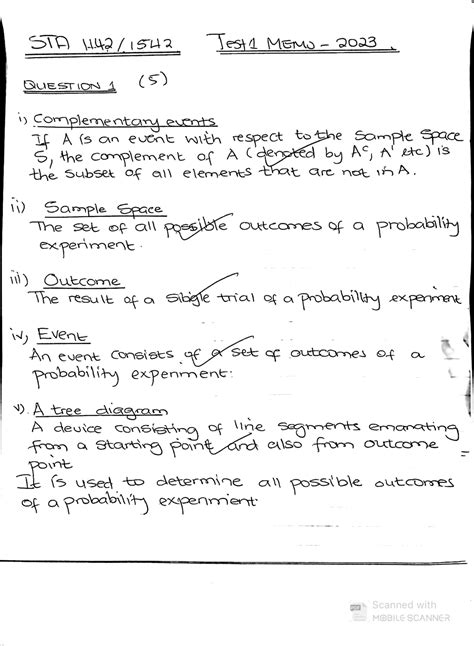 STA 1142/1542 Test 1 MEMO - 2023.
QUESTION 1 (5)
i) Complementary events
If A is an event with respect to the sample space
S, the complement of A (denoted by Aᶜ, A' etc) is
the subset of all elements that are not in A.
ii) Sample Space
The set of all possible outcomes of a probability
experiment.
iii) Outcome
The result of a single trial of a probability experiment
iv) Event
An event consists of a set of outcomes of a
probability experiment.
v) A tree diagram
A device consisting of line segments emanating
from a starting point and also from outcome
point
It is used to determine all possible outcomes
of a probability experiment
Scanned with
MOBILE SCANNER